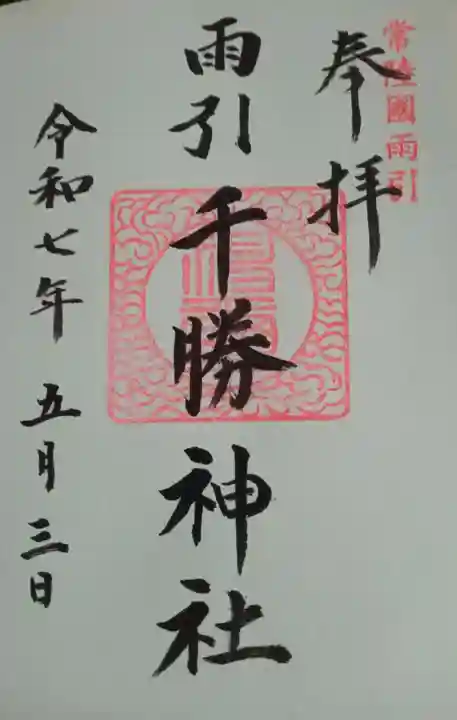 常陸國雨引
奉拝
雨引千勝神社
令和七年五月三日